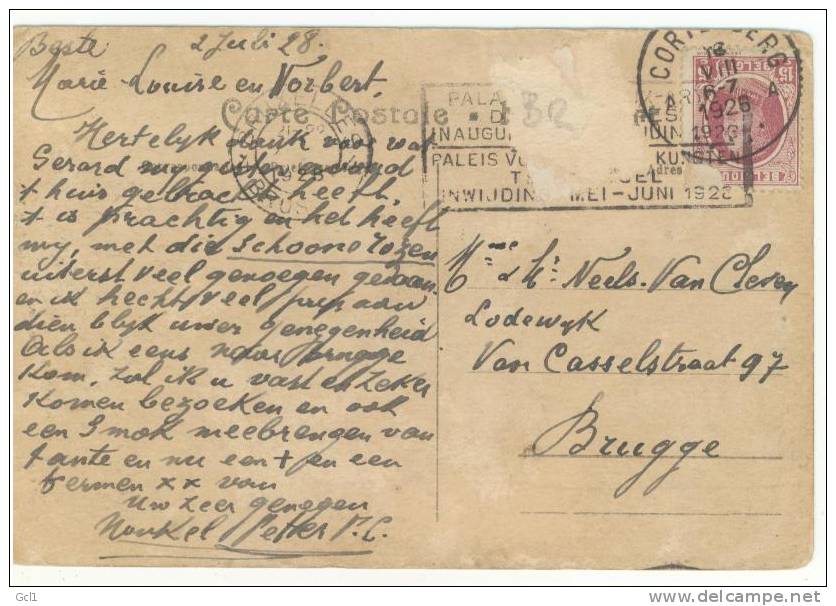 Beste 2 Juli 28.
Marie-Louise en Norbert,
Carte Postale
Hertelyk dank voor wat
Gerard my gisteren avond
t huis gebracht heeft,
t is prachtig en het heeft
my, met die Schoone rozen
uiterst veel genoegen gedaan.
en ik hecht veel prys aan
dien blyk uwer genegenheid
Als ik eens naar Brugge
kom, zal ik u vast en zeker
komen bezoeken en ook
een Smok meebrengen van
tante en nu een + en een
fermen xx van
Uw zeer genegen
Nonkel Petter P.C.
BR
CORTENBERG
13
VIII
6-7
1926
A A
15c
BELGIQUE
PALA
D
INAUGU JUIN 1928
PALEIS VO KUNSTEN
INWIJDING MEI-JUNI 1928
Adres
BRUS
1928
Mme & Mr Neels-Van Cleven
Lodewyk
Van Casselstraat 97
Brugge
Gc1
http://www.delcampe.net